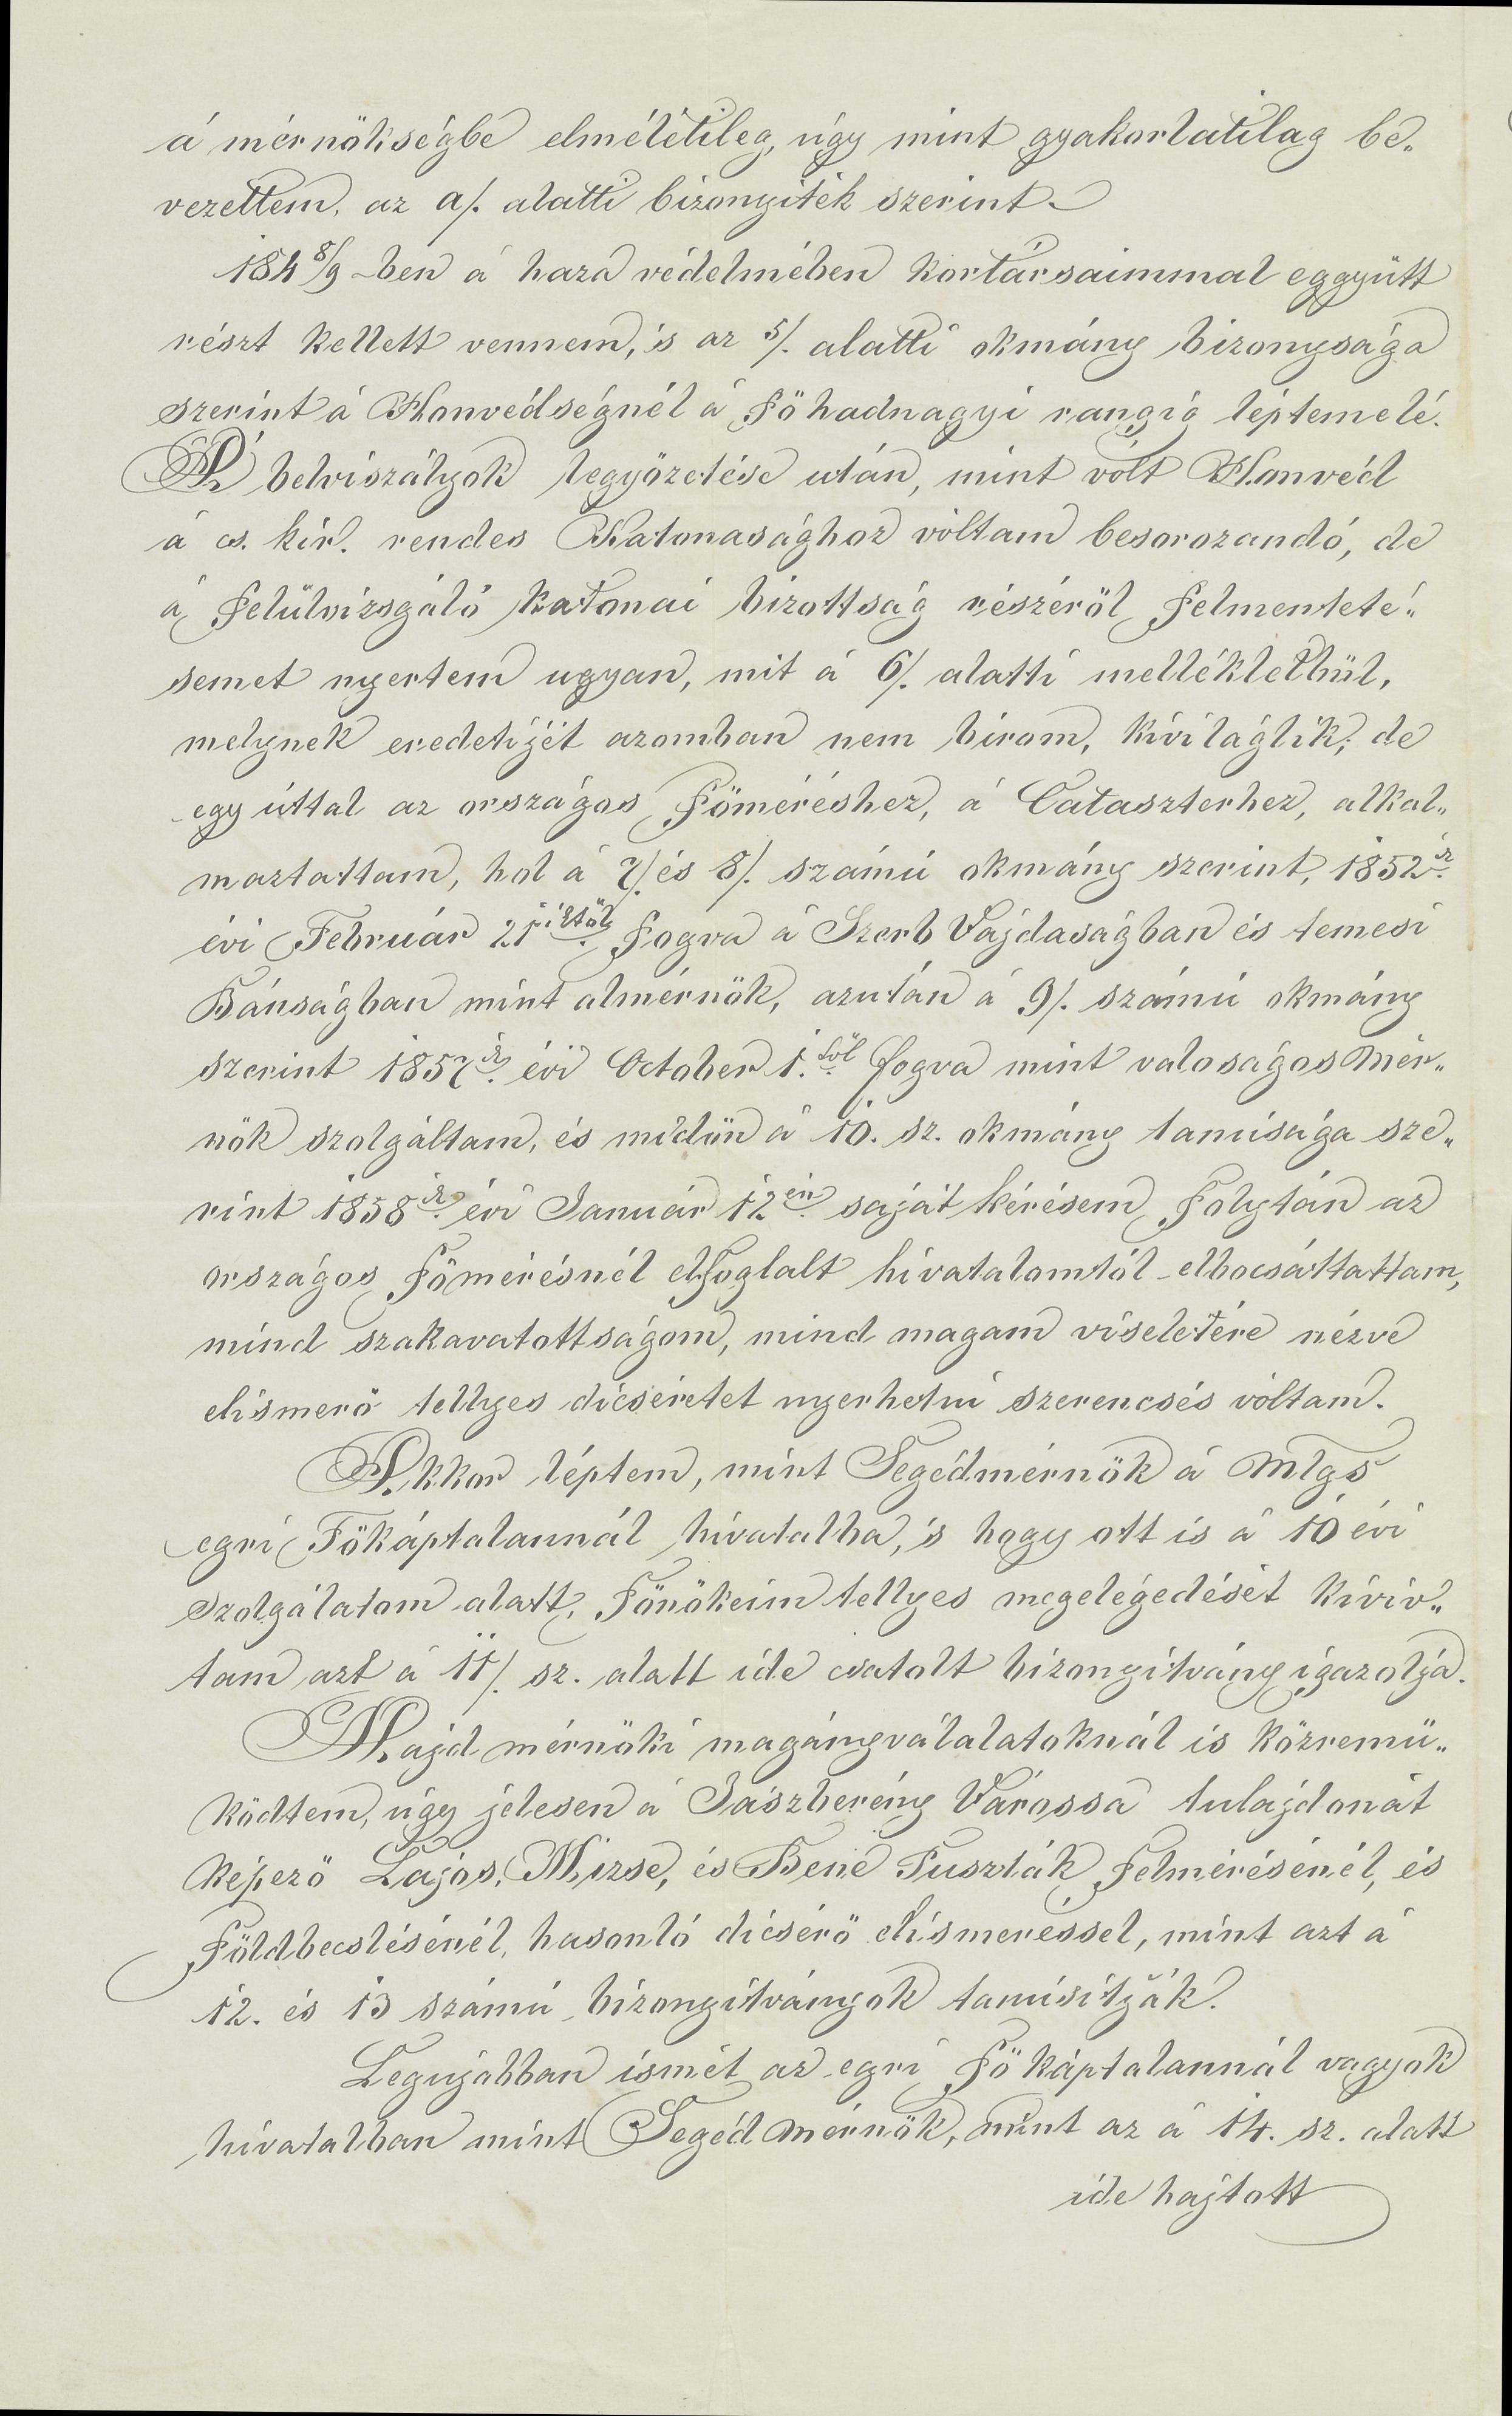 á mérnökségbe elméletileg, úgy mint gyakorlatilag be„
vezettem, az a/. alatti bizonyiték szerint.
184 8/9 -ben á haza védelmében kortársaimmal eggyütt
részt kellett vennem, 's az 5/. alatti okmány bizonysága
szerint á Honvédségnél á főhadnagyi rangig léptem elé.
Á belviszályok legyőzetése után, mint vólt Honvéd
á cs. kir. rendes Katonasághoz vóltam besorozandó, de
á felülvizsgáló katonai bizottság részéről felmenteté„
semet nyertem ugyan, mit á 6/. alatti mellékletbül,
melynek eredetijét azomban nem birom, kiviláglik; de
egy úttal az országos főméréshez, á Cataszterhez, alkal„
maztattam, hol á 7/. és 8/. számú okmány szerint, 1852ik
évi Február 21iktől fogva á Szerb Vajdaságban és temesi
Bánságban mint almérnök, azután á 9/. számú okmány
szerint 1857ik évi October 1.től fogva mint valoságos Mér„
nök szolgáltam, és midőn á 10. sz. okmány tanúsága sze„
rint 1858ik évi Január 12én saját kérésem folytán az
országos főmérésnél elfoglalt hivatalomtól elbocsáttattam,
mind szakavatottságom, mind magam viseletére nézve
elismerő tellyes dicséretet nyerhetni szerencsés vóltam.
Akkor léptem, mint Segédmérnök á Mlgs
egri Főkáptalannál hivatalba, 's hogy ott is á 10 évi
szolgálatom alatt, Főnökeim tellyes megelégedését kivív„
tam azt á 11/. sz. alatt ide csatolt bizonyitvány igazolja.
Majd mérnöki magányválalatoknál is közremü„
ködtem, úgy jelesen á Jászberény Várossa tulajdonát
képező Lajos, Mizse, és Bene Puszták felmérésénél, és
földbecslésénél, hasonló dicsérő elismeréssel, mint azt á
12. és 13 számú bizonyitványok tanúsitják.
Legujabban ismét az egri főkáptalannál vagyok
hivatalban mint Segéd Mérnök, mint az á 14. sz. alatt
ide hajtott